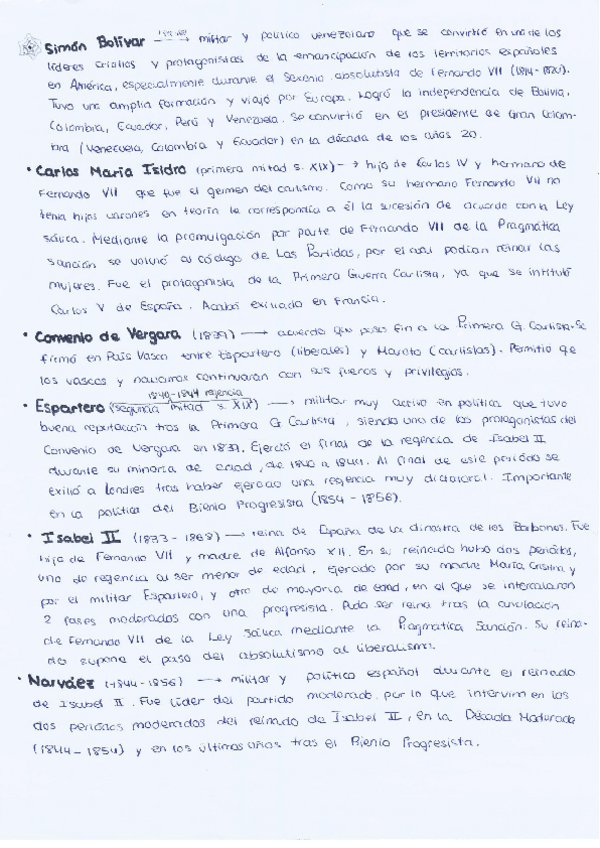 Simón Bolívar → militar y político venezolano que se convirtió en uno de los
líderes criollos y protagonistas de la emancipación de los territorios españoles
en América, especialmente durante el Sexenio absolutista de Fernando VII (1814-1820).
Tuvo una amplia formación y viajó por Europa. Logró la independencia de Bolivia,
Colombia, Ecuador, Perú y Venezuela. Se convirtió en el presidente de Gran Colom-
bia (Venezuela, Colombia y Ecuador) en la década de los años 20.
• Carlos María Isidro (primera mitad s. XIX) → hijo de Carlos IV y hermano de
Fernando VII que fue el germen del carlismo. Como su hermano Fernando VII no
tenía hijos varones en teoría le correspondía a él la sucesión de acuerdo con la Ley
sálica. Mediante la promulgación por parte de Fernando VII de la Pragmática
sanción se volvió al código de Las Partidas, por el cual podían reinar las
mujeres. Fue el protagonista de la Primera Guerra Carlista, ya que se intituló
Carlos V de España. Acabó exiliado en Francia.
• Convenio de Vergara (1839) → acuerdo que puso fin a la Primera G. Carlista. Se
firmó en País Vasco entre Espartero (liberales) y Maroto (carlistas). Permitió qe
los vascos y navarros continuaran con sus fueros y privilegios.
1840-1844 regencia
• Espartero (segunda mitad s. XIX) → militar muy activo en política que tuvo
buena reputación tras la Primera G Carlista, siendo uno de los protagonistas del
Convenio de Vergara en 1839. Ejerció el final de la regencia de Isabel II
durante su minoría de edad, de 1840 a 1844. Al final de este período se
exilió a Londres tras haber ejercido una regencia muy dictatorial. Importante
en la política del Bienio Progresista (1854-1856).
• Isabel II (1833-1868) → reina de España de la dinastía de los Borbones. Fue
hija de Fernando VII y madre de Alfonso XII. En su reinado hubo dos periodos,
uno de regencia al ser menor de edad, ejercido por su madre María Cristina y
por el militar Espartero, y otro de mayoría de edad, en el que se intercalaron
2 fases moderadas con una progresista. Pudo ser reina tras la anulación
de Fernando VII de la Ley Sálica mediante la Pragmática Sanción. Su reina-
do supone el paso del absolutismo al liberalismo.
• Narváez (1844-1856) → militar y político español durante el reinado
de Isabel II. Fue líder del partido moderado, por lo que intervino en los
dos periodos moderados del reinado de Isabel II, en la Década Moderada
(1844-1854) y en los últimos años tras el Bienio Progresista.